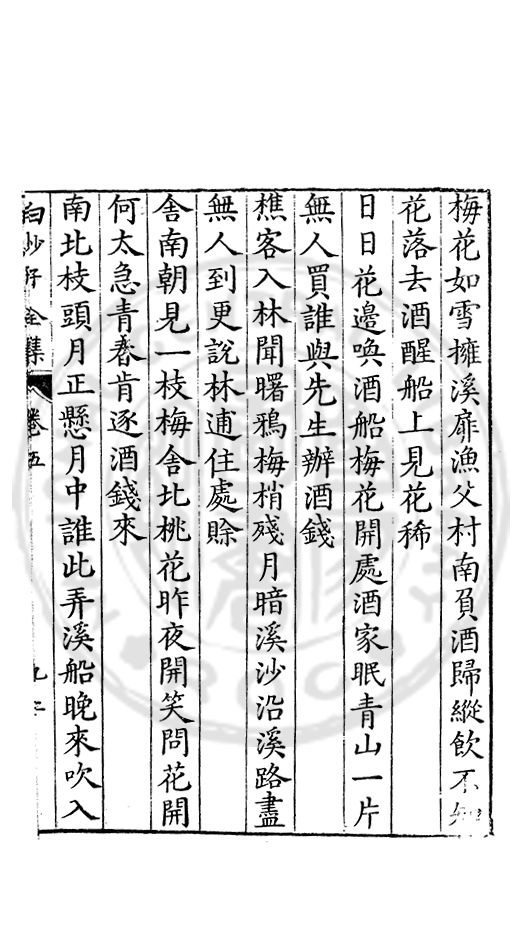 梅花如雪擁溪扉漁父村南負酒歸縱飲不知
花落去酒醒船上見花稀
日日花邊喚酒船梅花開處酒家眠青山一片
無人買誰與先生辦酒錢
樵客入林聞曙鴉梅梢殘月暗溪沙沿溪路盡
無人到更說林逋住處賖
舎南朝見一枝梅舎北桃花昨夜開笑問花開
何太急青春肯逐酒錢來
南北枝頭月正懸月中誰此弄溪船晚來吹入
白沙子全集 卷五